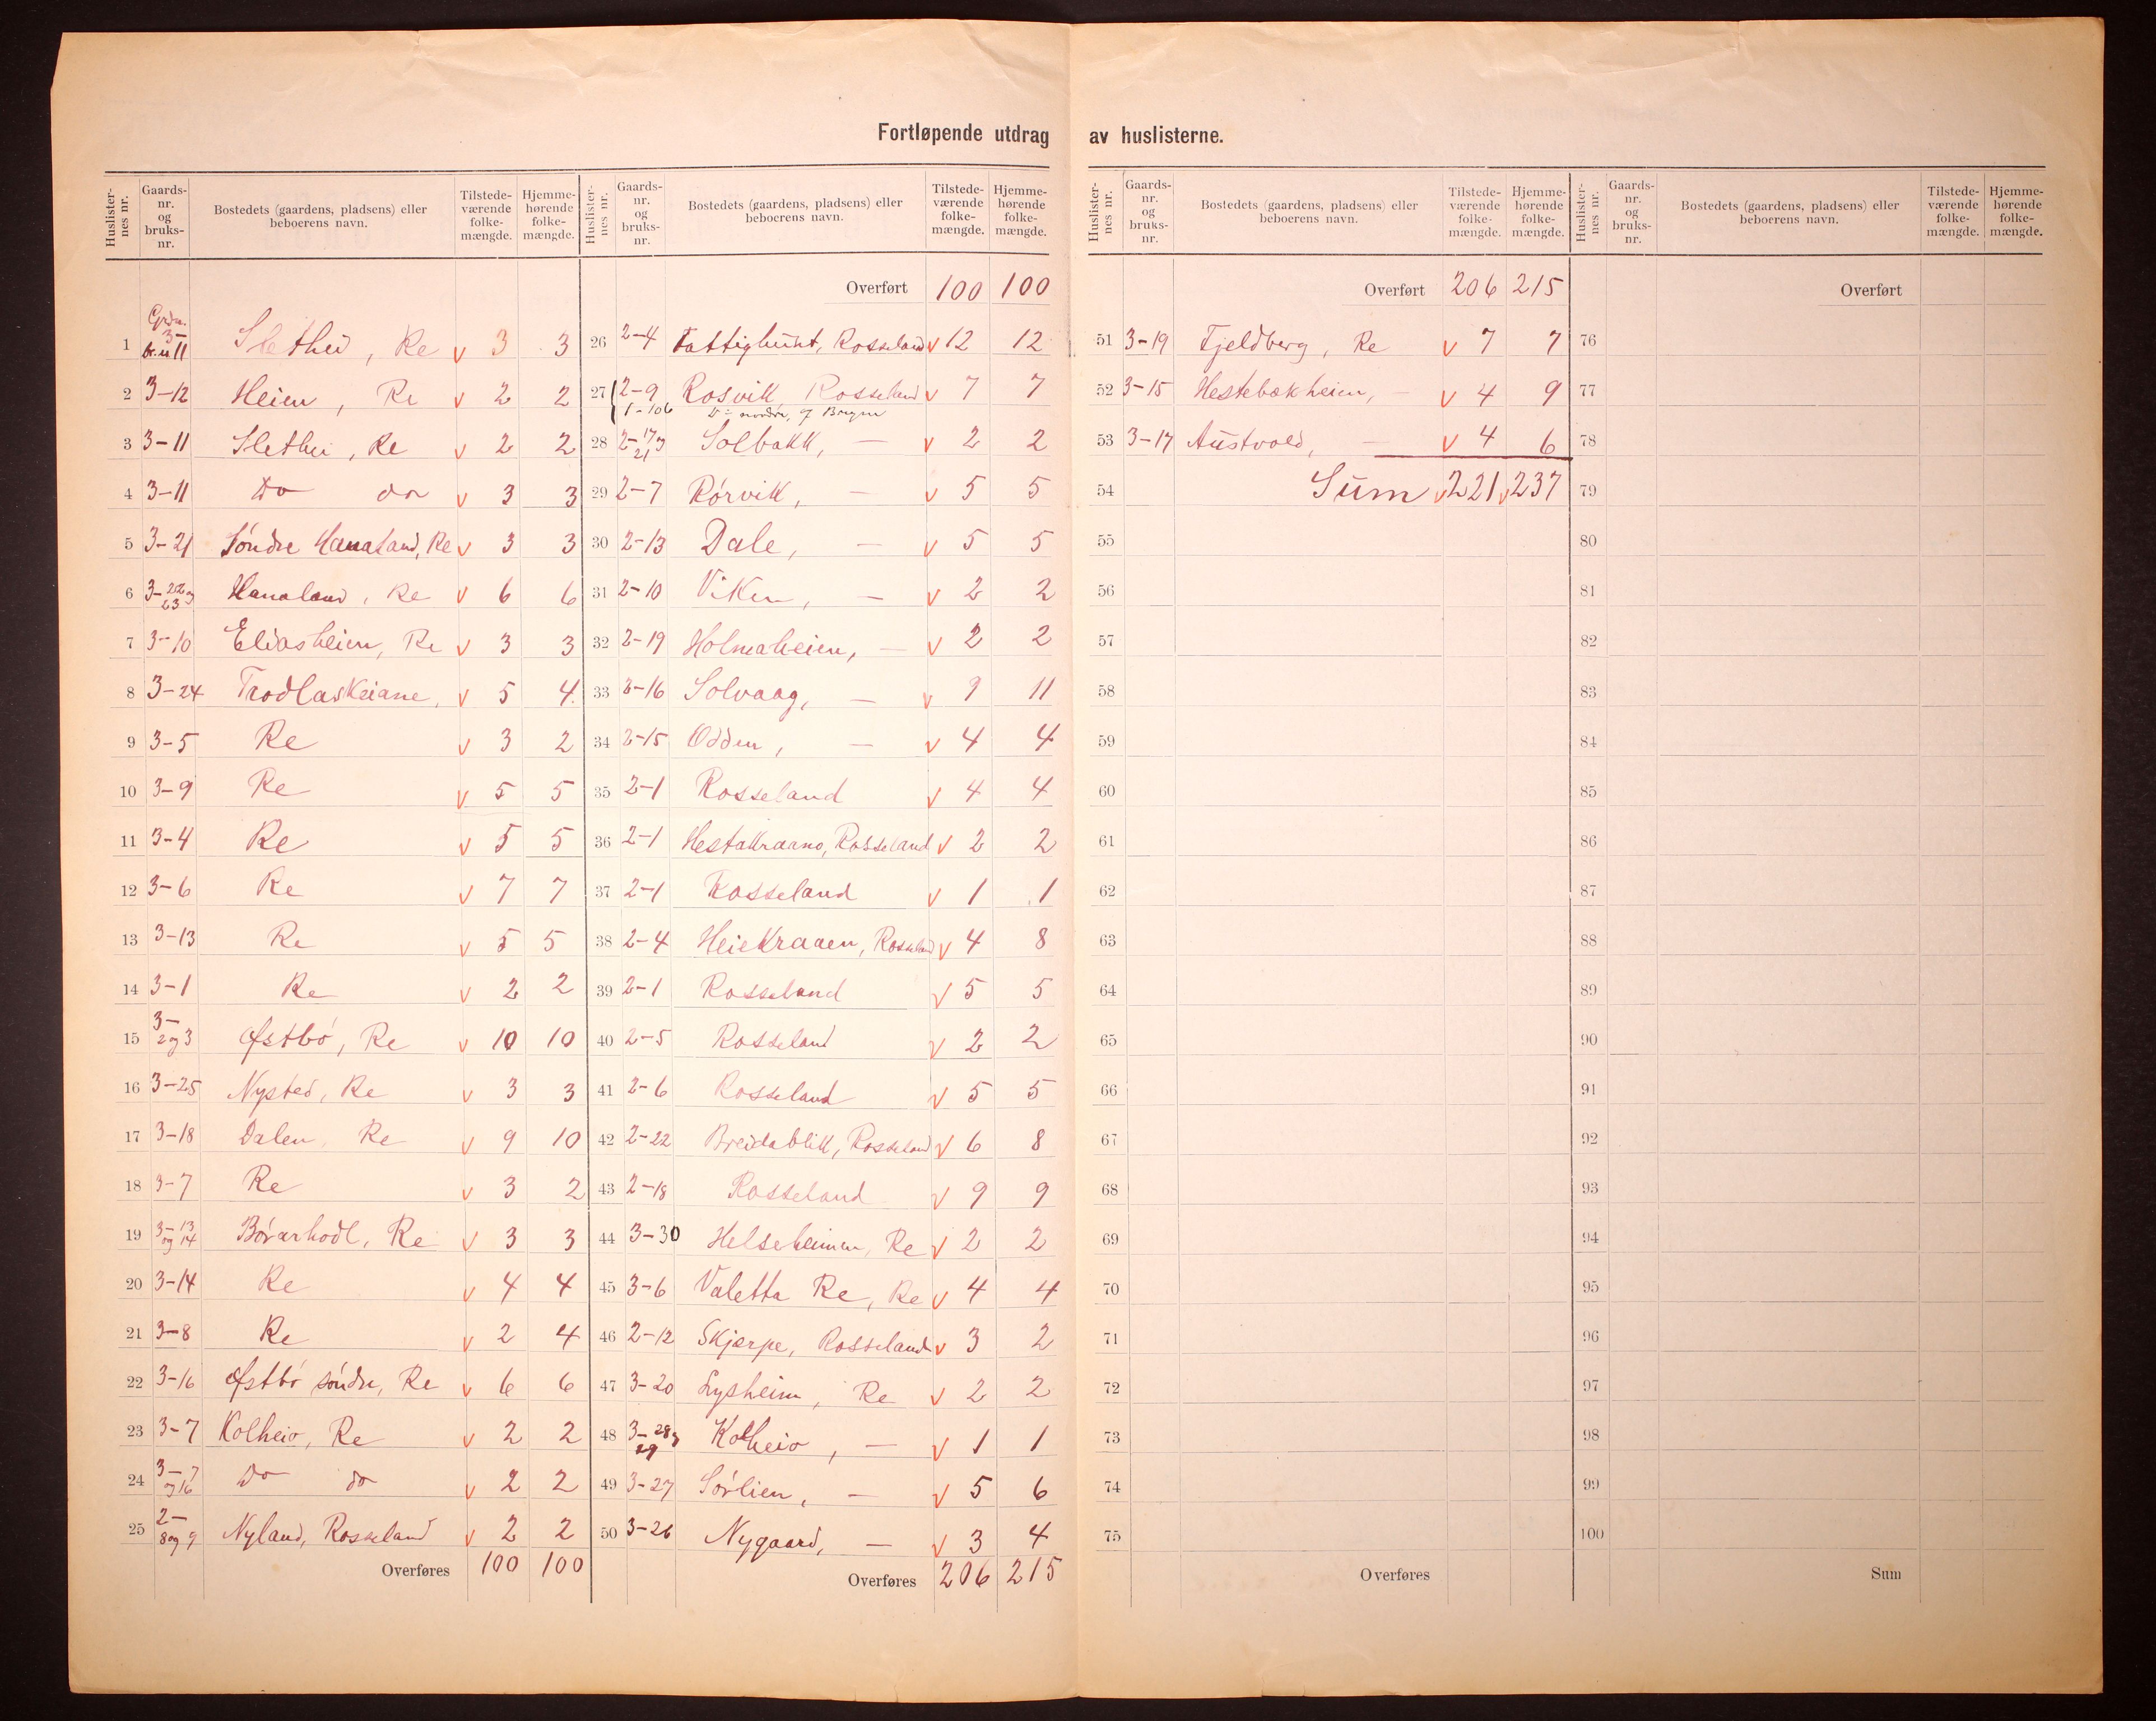 Fortløpende utdrag av huslisterne.
Huslister-nes nr. Gaards-nr. og bruks-nr. Bostedets (gaardens, pladsens) eller beboerens navn. Tilstede-værende folke-mængde. Hjemme-hørende folke-mængde.
1 Grdn. 3— br.n 11 Slethei, Re v 3 3
2 3-12 Heien, Re v 2 2
3 3-11 Slethei, Re v 2 2
4 3-11 Do do v 3 3
5 3-21 Söndre Hanaland, Re v 3 3
6 3-22 og 23 Hanaland, Re v 6 6
7 3-10 Eliasheien, Re v 3 3
8 3-24 Trodlaskeiane, v 5 4
9 3-5 Re v 3 2
10 3-9 Re v 5 5
11 3-4 Re v 5 5
12 3-6 Re v 7 7
13 3-13 Re v 5 5
14 3-1 Re v 2 2
15 3— 2 og 3 Østbö, Re v 10 10
16 3-25 Nysted, Re v 3 3
17 3-18 Dalen, Re v 9 10
18 3-7 Re v 3 2
19 3-13 og 14 Bövarhodl, Re v 3 3
20 3-14 Re v 4 4
21 3-8 Re v 2 4
22 3-16 Østbö söndre, Re v 6 6
23 3-7 Kolheio, Re v 2 2
24 3-7 og 16 Do do v 2 2
25 2— 8 og 9 Nyland, Rosseland v 2 2
Overføres 100 100
Huslister-nes nr. Gaards-nr. og bruks-nr. Bostedets (gaardens, pladsens) eller beboerens navn. Tilstede-værende folke-mængde. Hjemme-hørende folke-mængde.
Overført 100 100
26 2-4 Fattighuset, Rosseland v 12 12
27 2-9 Rosvik, Rosseland v 7 7
1-106 nordre, Bryne
28 2-17 og 21 Solbakk, — v 2 2
29 2-7 Rörvik, — v 5 5
30 2-13 Dale, — v 5 5
31 2-10 Viken, — v 2 2
32 2-19 Holmaheien, — v 2 2
33 2-16 Solvaag, — v 9 11
34 2-15 Odden, — v 4 4
35 2-1 Rosseland v 4 4
36 2-1 Hestakraano, Rosseland v 2 2
37 2-1 Rosseland v 1 1
38 2-4 Heiekraaen, Rosseland v 4 8
39 2-1 Rosseland v 5 5
40 2-5 Rosseland v 2 2
41 2-6 Rosseland v 5 5
42 2-22 Breidablik, Rosseland v 6 8
43 2-18 Rosseland v 9 9
44 3-30 Helseheimen, Re v 2 2
45 3-6 Valetta Re, Re v 4 4
46 2-12 Skjærpe, Rosseland v 3 2
47 3-20 Lysheim, Re v 2 2
48 3-28 og 29 Kolheio, — v 1 1
49 3-27 Sörlien, — v 5 6
50 3-26 Nygaard, — v 3 4
Overføres 206 215
Huslister-nes nr. Gaards-nr. og bruks-nr. Bostedets (gaardens, pladsens) eller beboerens navn. Tilstede-værende folke-mængde. Hjemme-hørende folke-mængde.
Overført 206 215
51 3-19 Fjeldberg, Re v 7 7
52 3-15 Hestebækheien, — v 4 9
53 3-17 Austvold, — v 4 6
54 Sum v 221 v 237
55
56
57
58
59
60
61
62
63
64
65
66
67
68
69
70
71
72
73
74
75
Overføres
Huslister-nes nr. Gaards-nr. og bruks-nr. Bostedets (gaardens, pladsens) eller beboerens navn. Tilstede-værende folke-mængde. Hjemme-hørende folke-mængde.
Overført
76
77
78
79
80
81
82
83
84
85
86
87
88
89
90
91
92
93
94
95
96
97
98
99
100
Sum